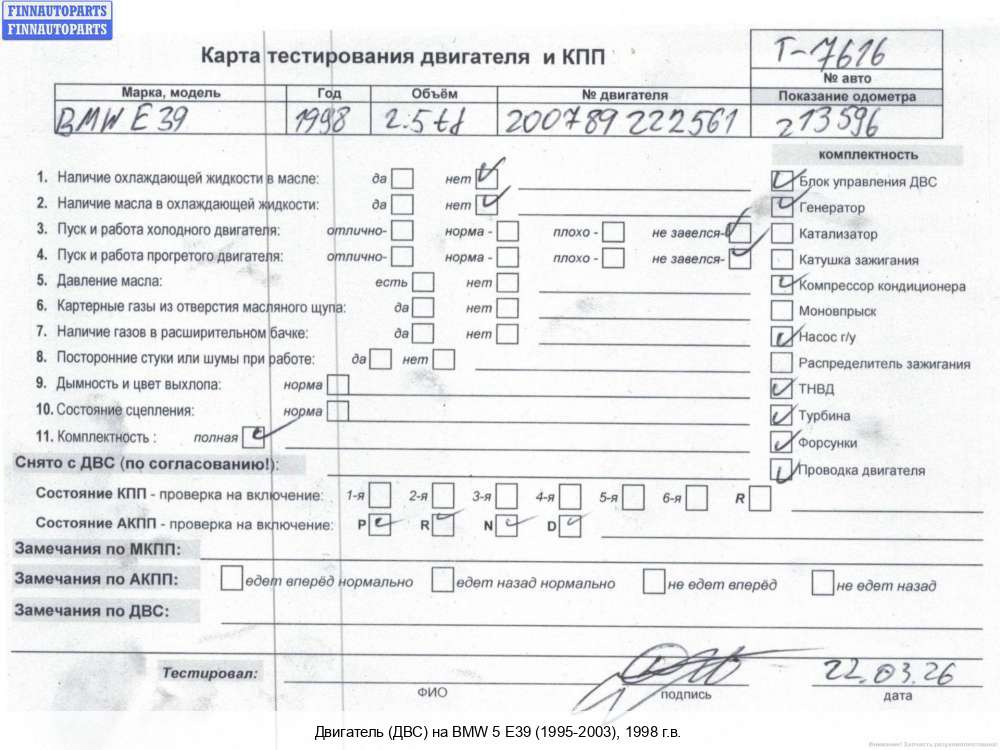 FINNAUTOPARTS
FINNAUTOPARTS
Карта тестирования двигателя и КПП
T-7616
№ авто
Марка, модель Год Объём № двигателя Показание одометра
BMW E39 1998 2.5td 200789 222561 213596
комплектность
1. Наличие охлаждающей жидкости в масле: да нет
Блок управления ДВС
2. Наличие масла в охлаждающей жидкости: да нет
Генератор
3. Пуск и работа холодного двигателя: отлично- норма - плохо - не завелся-
Катализатор
4. Пуск и работа прогретого двигателя: отлично- норма - плохо - не завелся-
Катушка зажигания
5. Давление масла: есть нет
Компрессор кондиционера
6. Картерные газы из отверстия масляного щупа: да нет
Моновпрыск
7. Наличие газов в расширительном бачке: да нет
Насос г/у
8. Посторонние стуки или шумы при работе: да нет
Распределитель зажигания
9. Дымность и цвет выхлопа: норма
ТНВД
10. Состояние сцепления: норма
Турбина
11. Комплектность : полная
Форсунки
Снято с ДВС (по согласованию!):
Проводка двигателя
Состояние КПП - проверка на включение: 1-я 2-я 3-я 4-я 5-я 6-я R
Состояние АКПП - проверка на включение: P R N D
Замечания по МКПП:
Замечания по АКПП: едет вперёд нормально едет назад нормально не едет вперёд не едет назад
Замечания по ДВС:
Тестировал: 22.03.26
ФИО подпись дата
Двигатель (ДВС) на BMW 5 E39 (1995-2003), 1998 г.в.